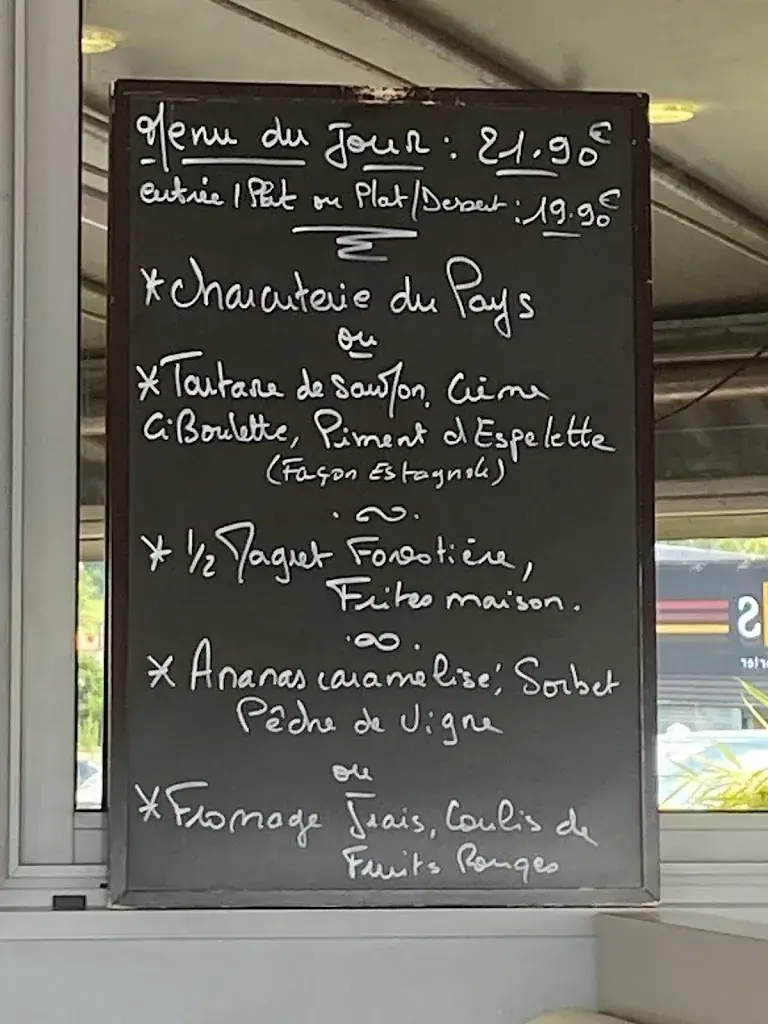 Menu du Jour : 21.90€
entrée / Plat ou Plat/Dessert : 19.90€
*Charcuterie du Pays
ou
*Tartare de Saumon, Crème
CiBoulette, Piment d'Espelette
(Façon Espagnole)
* 1/2 Magret Forestière,
Frites maison.
* Ananas caramelisé, Sorbet
Pêche de Vigne
ou
*Fromage Frais, Coulis de
Fruits Rouges
S